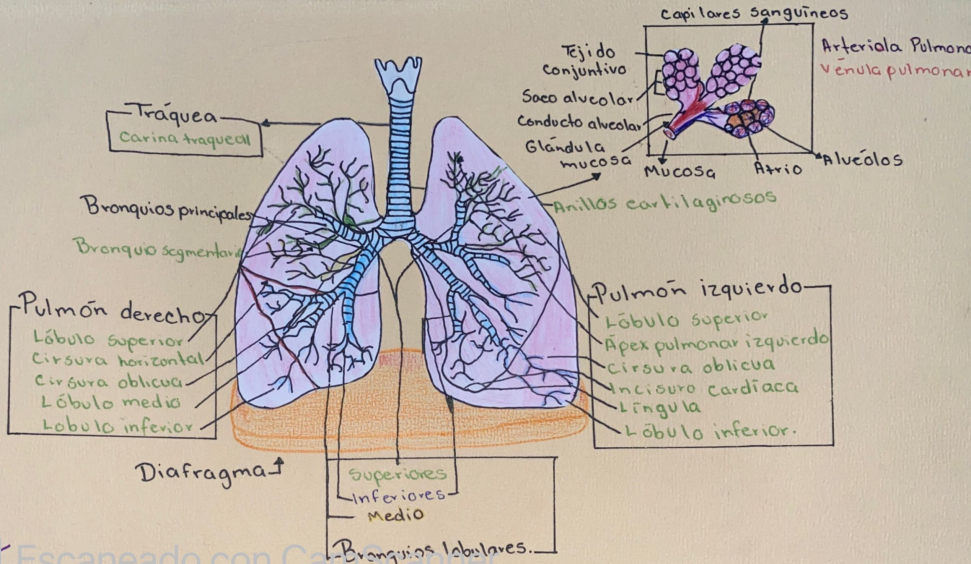 Capilares sanguíneos
Arteriola Pulmona
Vénula pulmonar
Tejido
conjuntivo
Saco alveolar
Conducto alveolar
Glándula
mucosa
Mucosa
Atrio
Alveólos
Tráquea
Carina traqueal
Bronquios principales
Bronquio segmentari
Anillos cartilaginosos
Pulmón derecho
Lóbulo superior
Cirsura horizontal
Cirsura oblicua
Lóbulo medio
Lobulo inferior
Pulmón izquierdo
Lóbulo superior
Ápex pulmonar izquierdo
Cirsura oblicua
Incisuro cardíaca
Língula
Lóbulo inferior.
Diafragma
Superiores
Inferiores
Medio
Bronquios lobulares.
Escaneado con Cam